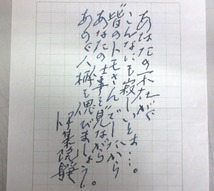 あなたの不在が
こんなにも寂しいとは…。
皆のトモさんでしたから
あなたの仕事を見ながら
あの人柄を偲びましょう。